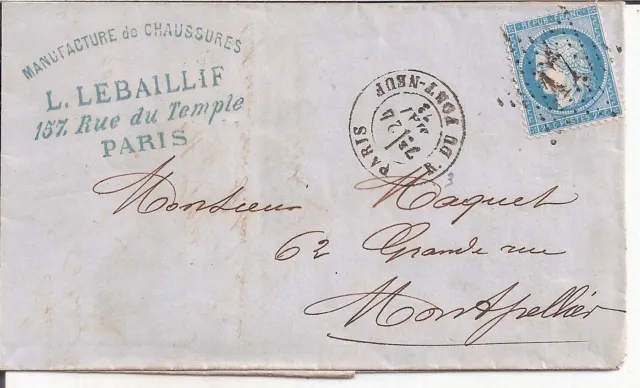 MANUFACTURE de CHAUSSURES
L. LEBAILLIF
157, Rue du Temple
PARIS
PARIS
R. DU PONT-NEUF
24
MAI
REPUB. FRANC.
Monsieur Maquet
62 Grande rue
Montpellier